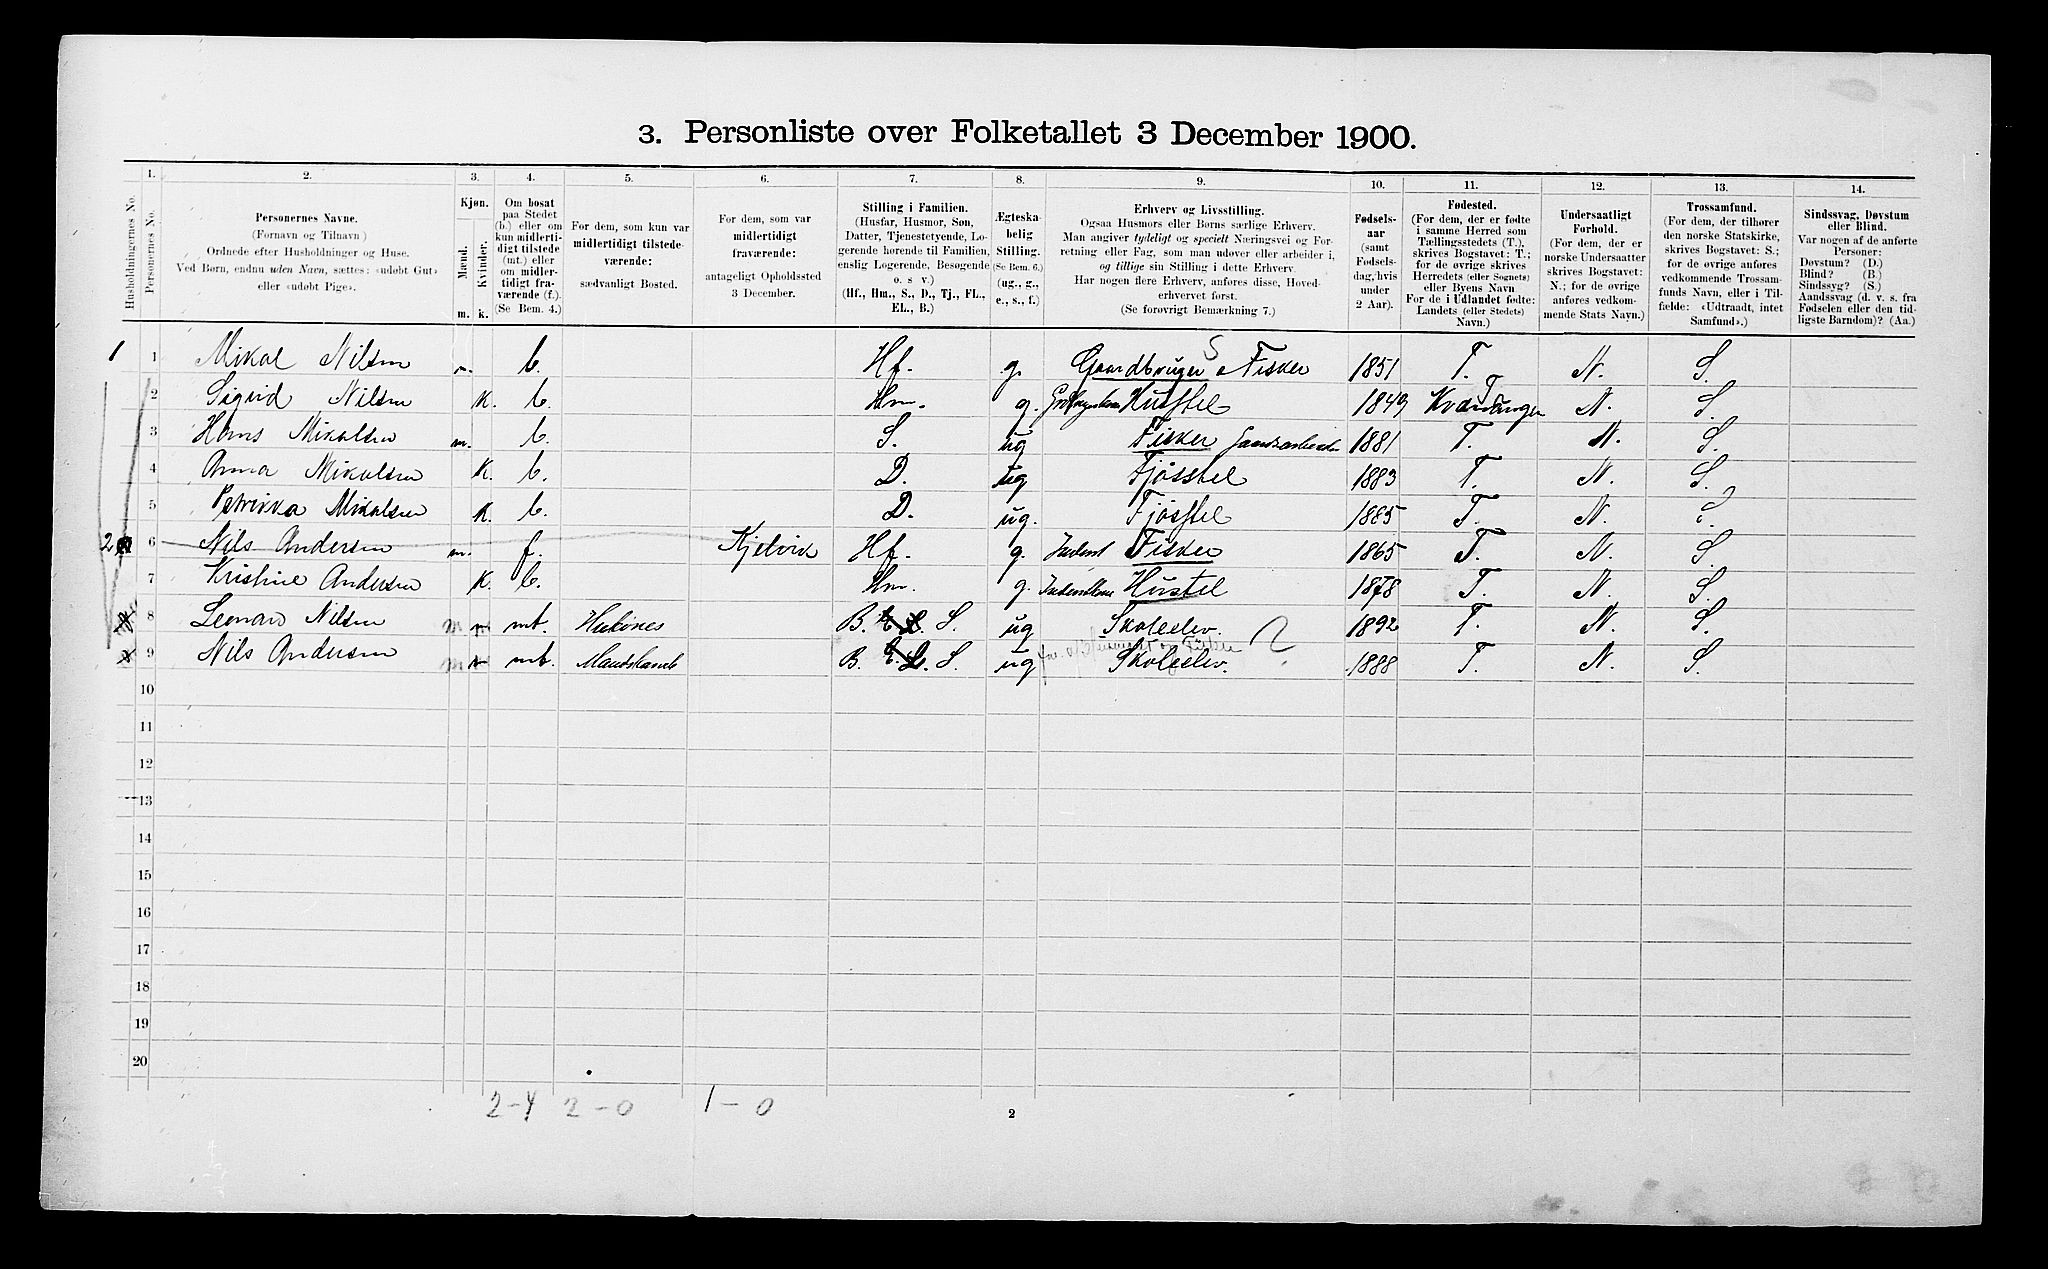 3. Personliste over Folketallet 3 December 1900.
Husholdningernes No.
1.
Personernes No.
2.
Personernes Navne.
(Fornavn og Tilnavn)
Ordnede efter Husholdninger og Huse.
Ved Børn, endnu uden Navn, sættes: «udøbt Gut»
eller «udøbt Pige».
3.
Kjøn.
Mænd.
Kvinder.
m. k.
4.
Om bosat
paa Stedet
(b.) eller om
kun midlerti-
digt tilstede
(mt.) eller
om midler-
tidigt fra-
værende (f.).
(Se Bem. 4.)
5.
For dem, som kun var
midlertidigt tilstede-
værende:
sædvanligt Bosted.
6.
For dem, som var
midlertidigt
fraværende:
antageligt Opholdssted
3 December.
7.
Stilling i Familien.
(Husfar, Husmor, Søn,
Datter, Tjenestetyende, Lo-
gerende hørende til Familien,
enslig Logerende, Besøgende
o. s. v.)
(Hf., Hm., S., D., Tj., FL.,
EL., B.)
8.
Ægteska-
belig
Stilling.
(Se Bem. 6.)
(ug., g.,
e., s., f.)
9.
Erhverv og Livsstilling.
Ogsaa Husmors eller Børns særlige Erhverv.
Man angiver tydeligt og specielt Næringsvei og For-
retning eller Fag, som man udøver eller arbeider i,
og tillige sin Stilling i dette Erhverv.
Har nogen flere Erhverv, anføres disse, Hoved-
erhvervet først.
(Se forøvrigt Bemærkning 7.)
10.
Fødsels-
aar
(samt
Fødsels-
dag, hvis
under
2 Aar).
11.
Fødested.
(For dem, der er fødte
i samme Herred som
Tællingsstedets (T.),
skrives Bogstavet: T.;
for de øvrige skrives
Herredets (eller Sognets)
eller Byens Navn
For de i Udlandet fødte:
Landets (eller Stedets)
Navn.)
12.
Undersaatligt
Forhold.
(For dem, der er
norske Undersaatter
skrives Bogstavet:
N.; for de øvrige
anføres vedkom-
mende Stats Navn.)
13.
Trossamfund.
(For dem, der tilhører
den norske Statskirke,
skrives Bogstavet: S.;
for de øvrige anføres
vedkommende Trossam-
funds Navn, eller i Til-
fælde: «Udtraadt, intet
Samfund».)
14.
Sindssvag, Døvstum
eller Blind.
Var nogen af de anførte
Personer:
Døvstum? (D.)
Blind? (B.)
Sindssyg? (S.)
Aandssvag (d. v. s. fra
Fødselen eller den tid-
ligste Barndom)? (Aa.)
1 1 Mikal Nilsen m. b. Hf. g. Gaardbruger S Fisker 1851 T. N. S.
2 Sigrid Nilsen k. b. Hm. g. Husstel 1849 Kvænangen T N. S.
3 Hans Mikalsen m. b. S. ug Fisker 1881 T. N. S.
4 Anna Mikalsen k. b. D. ug Fjøsstel 1883 T. N. S.
5 Petrikka Mikalsen k. b. D. ug. Fjøsstel 1885 T. N. S.
2 6 Nils Andersen m. f. Kjelvik Hf. g. Fisker 1865 T. N. S.
7 Kristine Andersen k. b. Hm. g. Hustel 1878 T. N. S.
8 Leonard Nilsen m mt. B. S. ug Skoleelev. 1892 T. N. S.
9 Nils Andersen m mt. B. S. ug Skoleelev. ? 1888 T. N. S
10
11
12
13
14
15
16
17
18
19
20
2-4 2-0 1-0
2